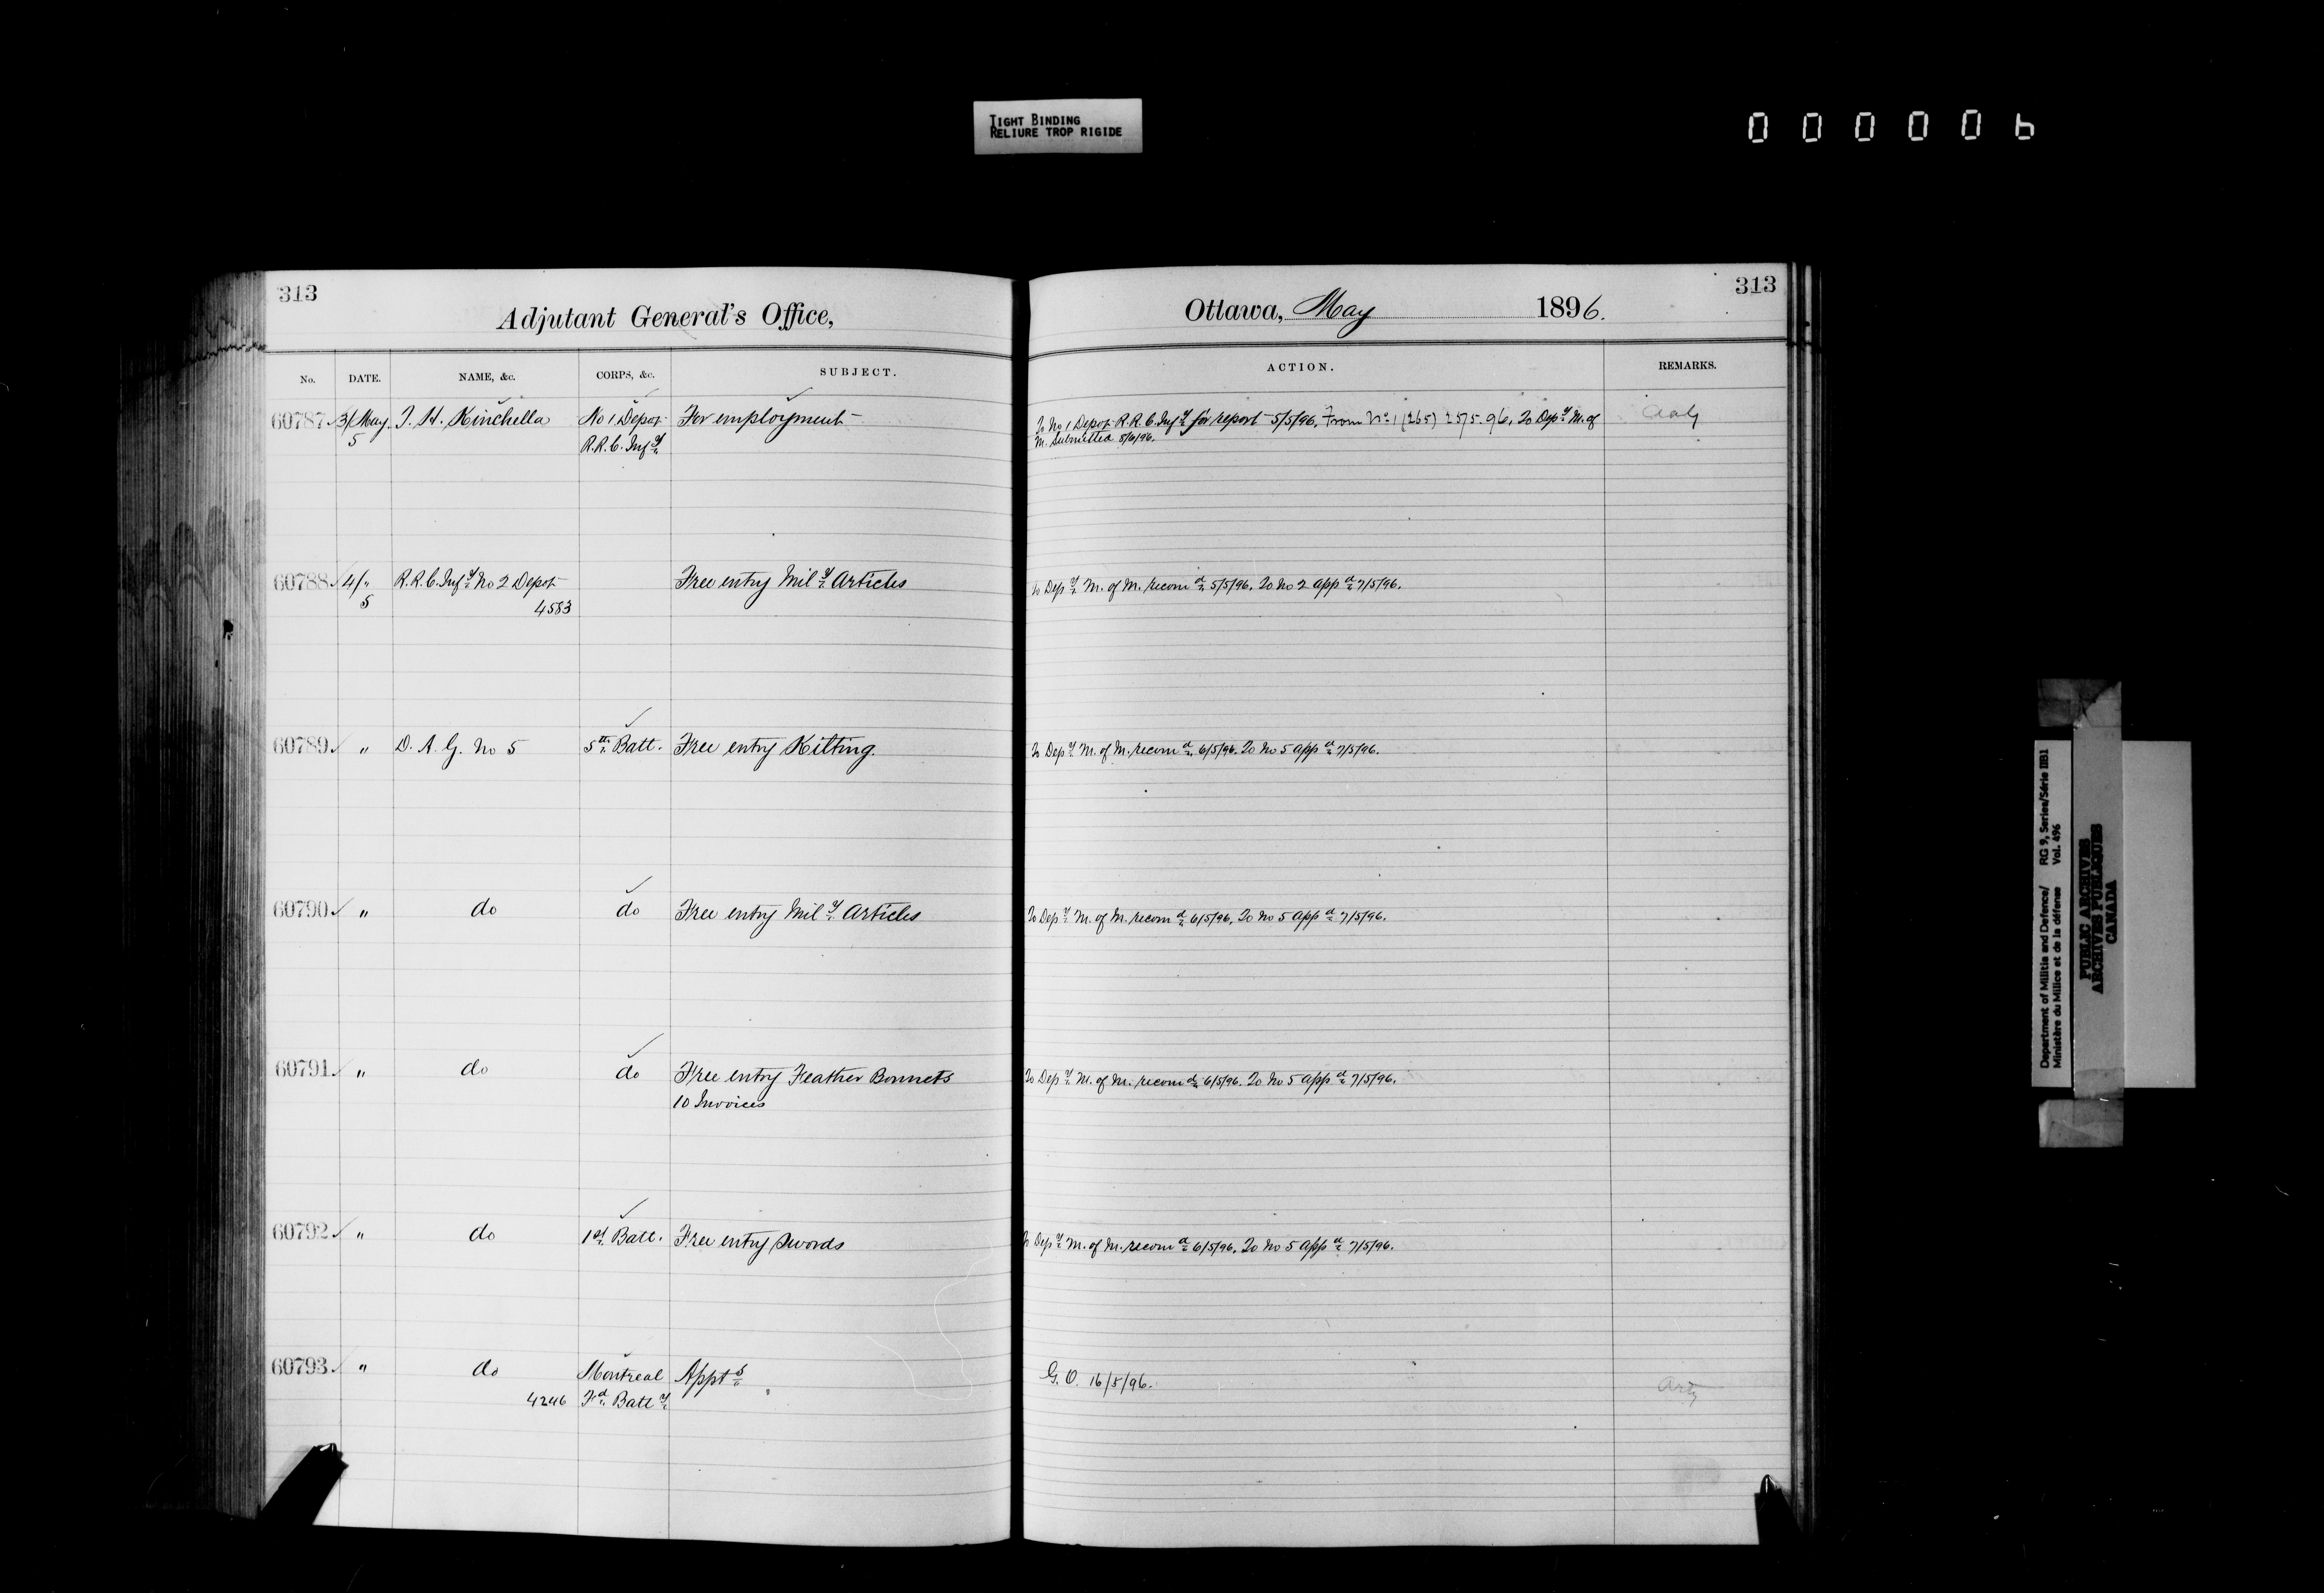 TIGHT BINDING
RELIURE TROP RIGIDE
000006
313
Adjutant General's Office,
Ottawa, May 1896.
313
No. DATE. NAME, &c. CORPS, &c. SUBJECT. ACTION. REMARKS.
60787 3/May J. H. Kinchella No 1 Depot For employment To No 1 Depot R.R.C. Infy for report 5/5/96, From No 1 (265) 25/5.96, To Depy M. of
5 R.R.C. Infy M. Submitted 5/6/96.
60788 4/" R.R.C. Infy No 2 Depot Free entry Mily Articles To Depy M. of M. recomd 5/5/96. To No 2 appd 7/5/96.
5 4583
60789 " D. A. G. No 5 5th Batt. Free entry Kilting. To Depy M. of M. recomd 6/5/96. To No 5 appd 7/5/96.
60790 " do do Free entry Mily Articles To Depy M. of M. recomd 6/5/96, To No 5 appd 7/5/96.
60791 " do do Free entry Feather Bonnets To Depy M. of M. recomd 6/5/96. To No 5 appd 7/5/96.
10 Invoices
60792 " do 1st Batt. Free entry Swords To Depy M. of M. recomd 6/5/96, To No 5 appd 7/5/96.
60793 " do Montreal Appts G. O. 16/5/96. Arty
4246 Fd Batty
Department of Militia and Defence/ RG 9, Series/Série IIB1
Ministère du Milice et de la défense Vol. 496
PUBLIC ARCHIVES
ARCHIVES PUBLIQUES
CANADA